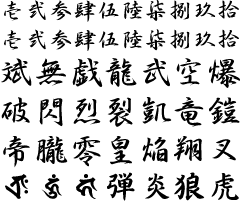 壱弐参肆伍陸柒捌玖拾
壱弐参肆伍陸柒捌玖拾
斌無戯龍武空爆
破閃烈裂凱竜鎧
帝朧零皇焔翔叉
弾炎狼虎